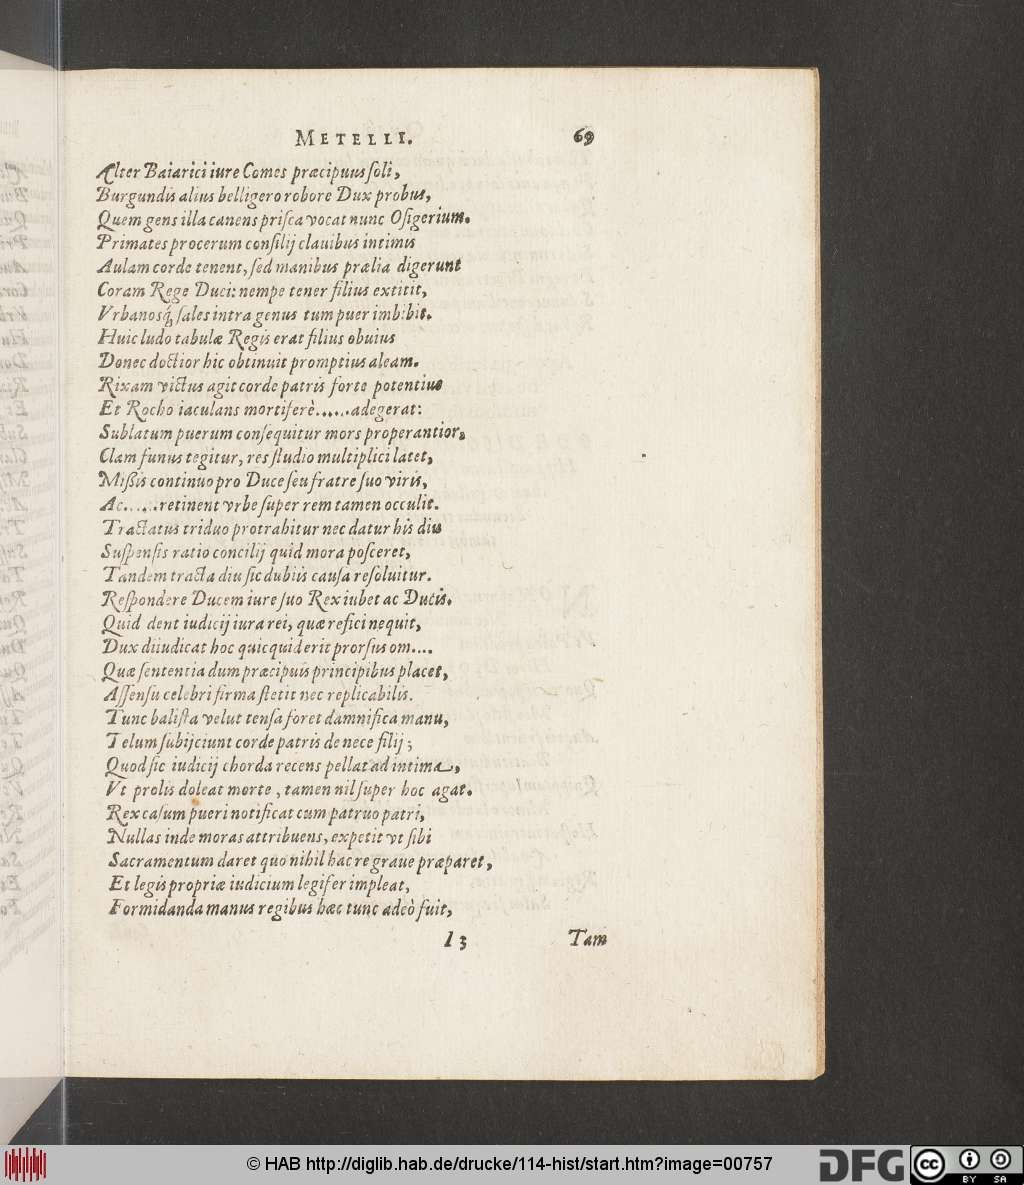 METELLI. 69
Alter Baiarici iure Comes præcipuus ſoli,
Burgundis alius belligero robore Dux probus,
Quem gens illa canens priſca vocat nunc Oſigerium.
Primates procerum conſilij clauibus intimis
Aulam corde tenent, ſed manibus prælia digerunt
Coram Rege Duci: nempe tener filius extitit,
Vrbanosq́; ſales intra genus tum puer imbibit.
Huic ludo tabulæ Regis erat filius obuius
Donec doctior hic obtinuit promptius aleam.
Rixam victus agit corde patris forte potentius
Et Rocho iaculans mortiferè......adegerat:
Sublatum puerum conſequitur mors properantior,
Clam funus tegitur, res ſtudio multiplici latet,
Miſſis continuo pro Duce ſeu fratre ſuo viris,
Ac......retinent vrbe ſuper rem tamen occulit.
Tractatus triduo protrahitur nec datur his diu
Suſpenſis ratio concilij quid mora poſceret,
Tandem tracta diu ſic dubiis cauſa reſoluitur.
Reſpondere Ducem iure ſuo Rex iubet ac Ducis.
Quid dent iudicij iura rei, quæ refici nequit,
Dux diiudicat hoc quicquid erit prorſus om....
Quæ ſententia dum præcipuis principibus placet,
Aſſenſu celebri firma ſtetit nec replicabilis.
Tunc baliſta velut tenſa foret damnifica manu,
Telum ſubijciunt corde patris de nece filij;
Quod ſic iudicij chorda recens pellat ad intima,
Vt prolis doleat morte, tamen nil ſuper hoc agat.
Rex caſum pueri notificat cum patruo patri,
Nullas inde moras attribuens, expetit vt ſibi
Sacramentum daret quo nihil hac re graue præparet,
Et legis propriæ iudicium legifer impleat,
Formidanda manus regibus hæc tunc adeò fuit,
I 3 Tam
© HAB http://diglib.hab.de/drucke/114-hist/start.htm?image=00757
DFG
cc BY SA